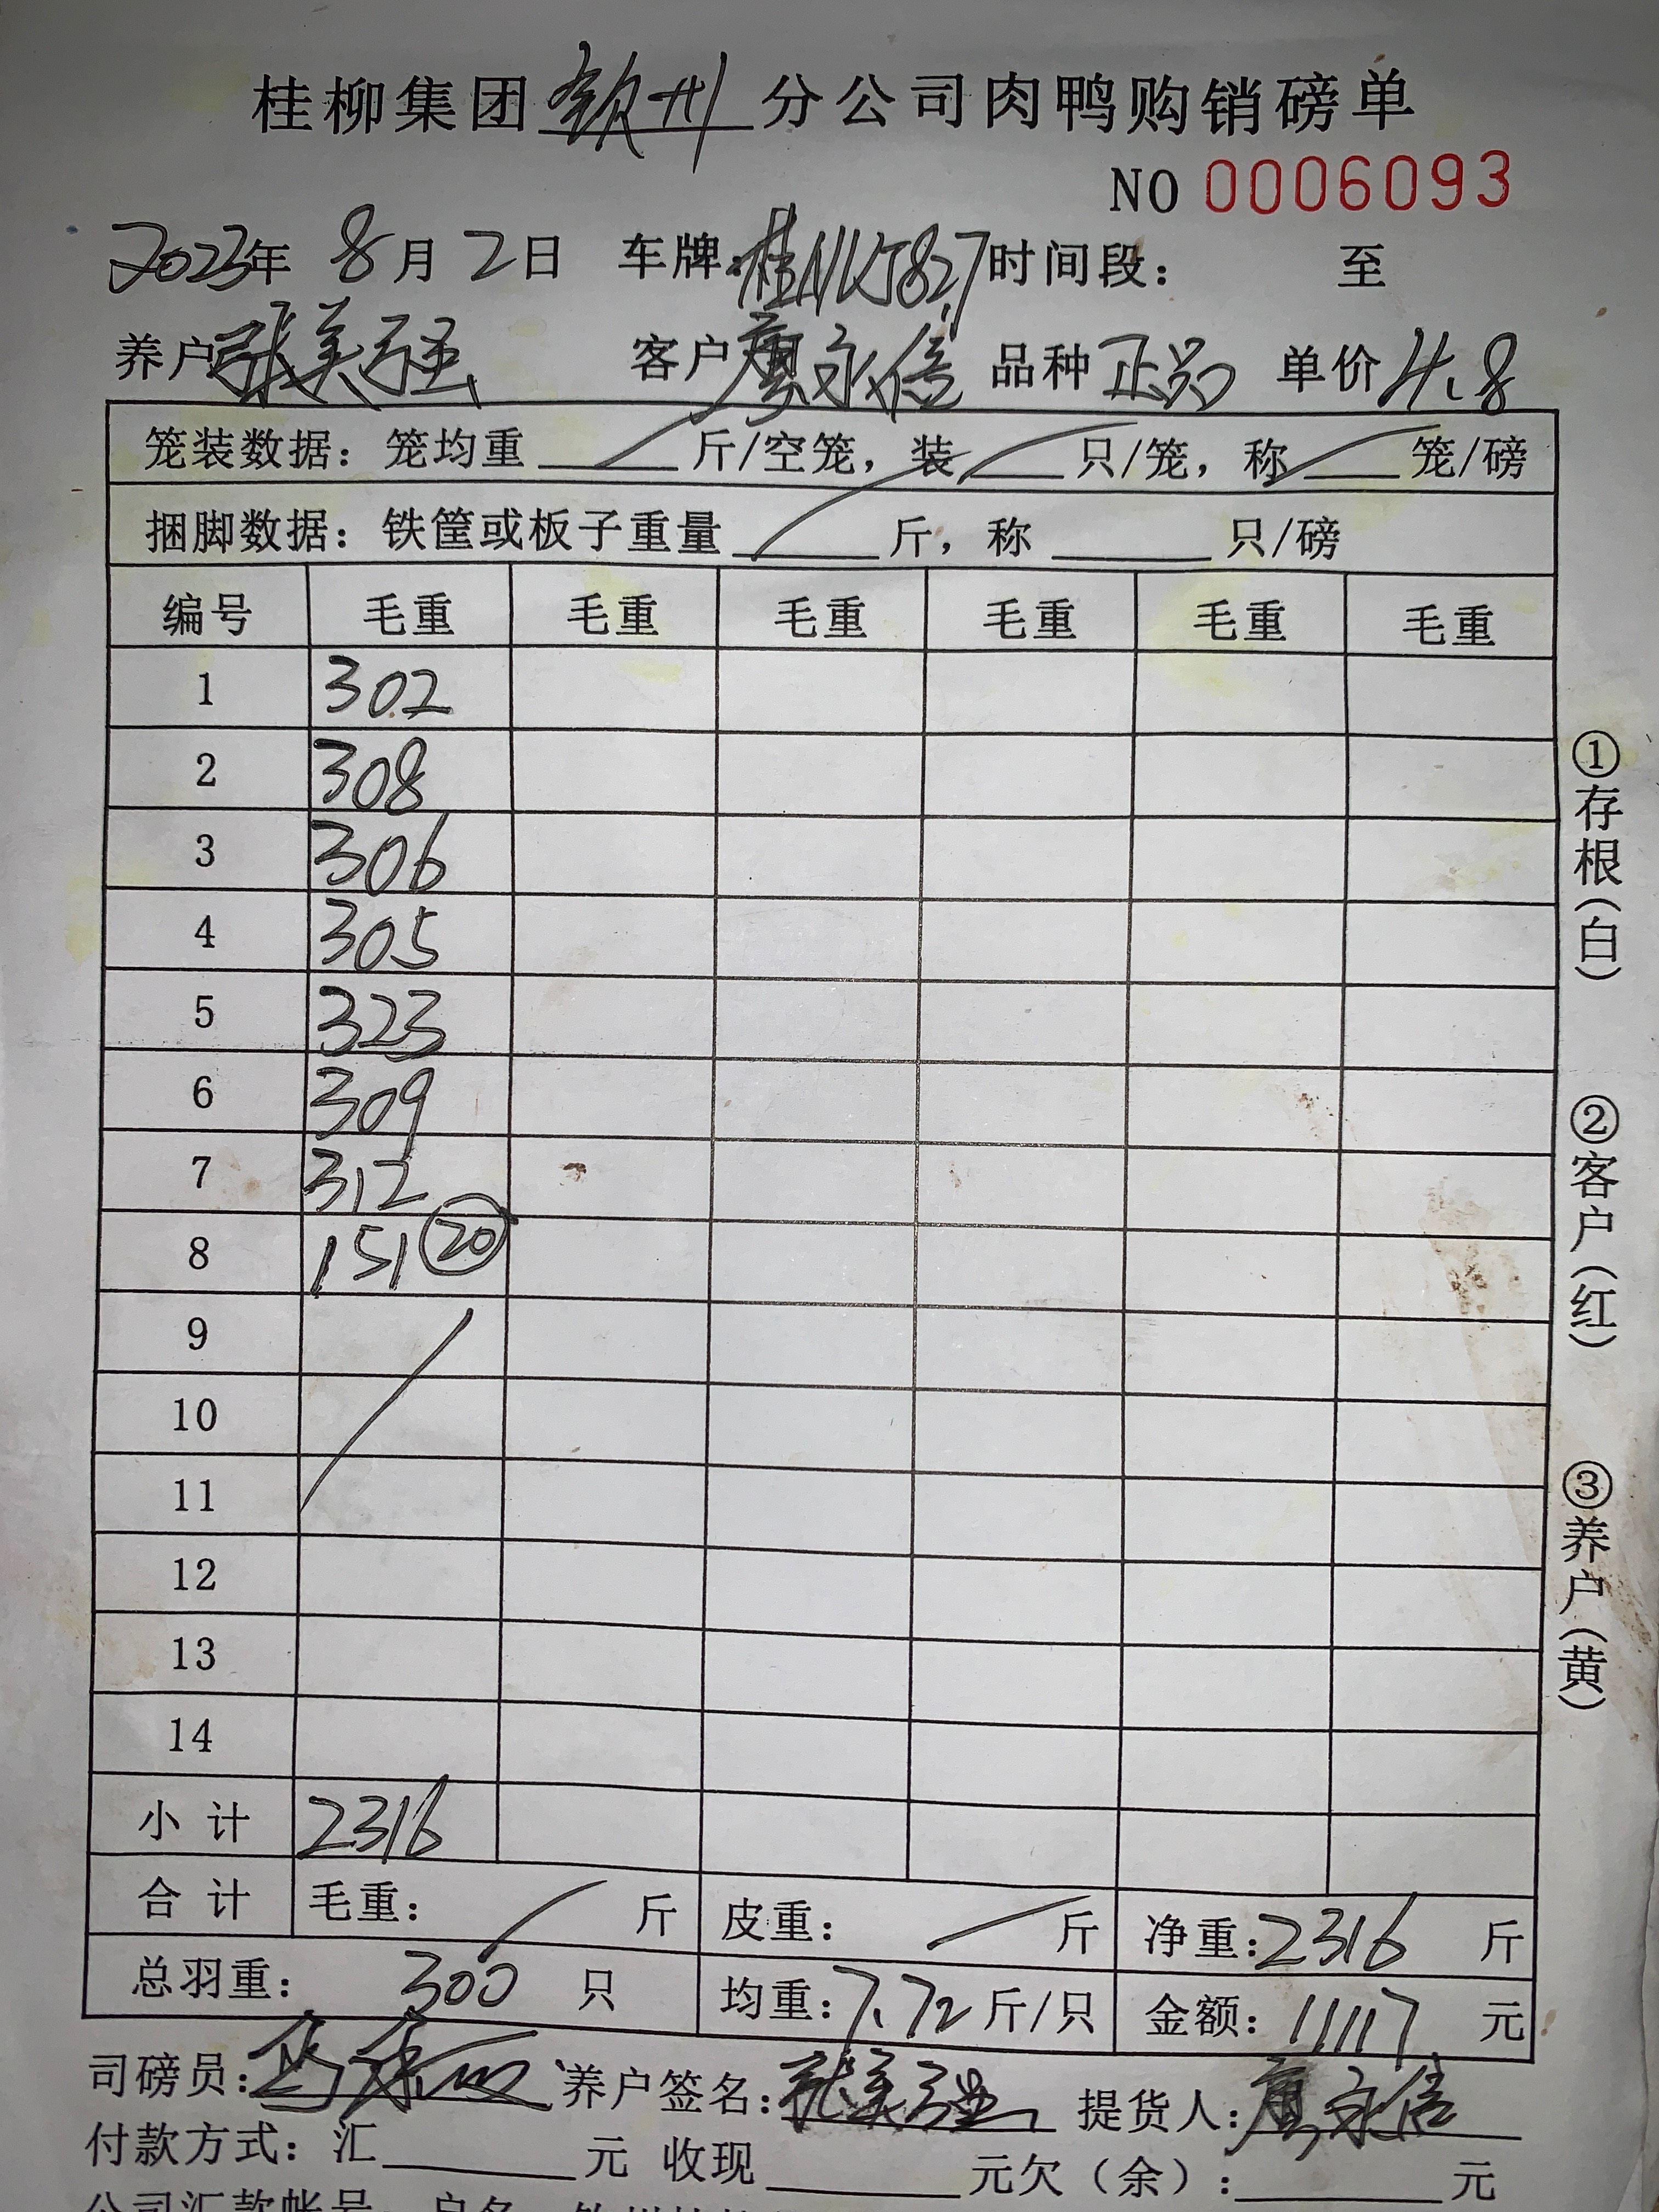 桂柳集团钦州分公司肉鸭购销磅单
NO 0006093
2023年 8月2日 车牌:桂NKJ827 时间段: 至
养户张美强 客户廖永信 品种正品 单价4.8
笼装数据:笼均重____斤/空笼,装____只/笼,称____笼/磅
捆脚数据:铁筐或板子重量____斤,称____只/磅
编号 毛重 毛重 毛重 毛重 毛重 毛重
1 302
2 308
3 306
4 305
5 323
6 309
7 312
8 151 ⑳
9
10
11
12
13
14
小计 2316
合计 毛重: 斤 皮重: 斤 净重:2316 斤
总羽重: 300 只 均重:7.72斤/只 金额:11117 元
司磅员: 养户签名:张美强 提货人:廖永信
付款方式:汇____元 收现____元欠(余):____元
公司汇款帐号 户名
①存根(白)
②客户(红)
③养户(黄)